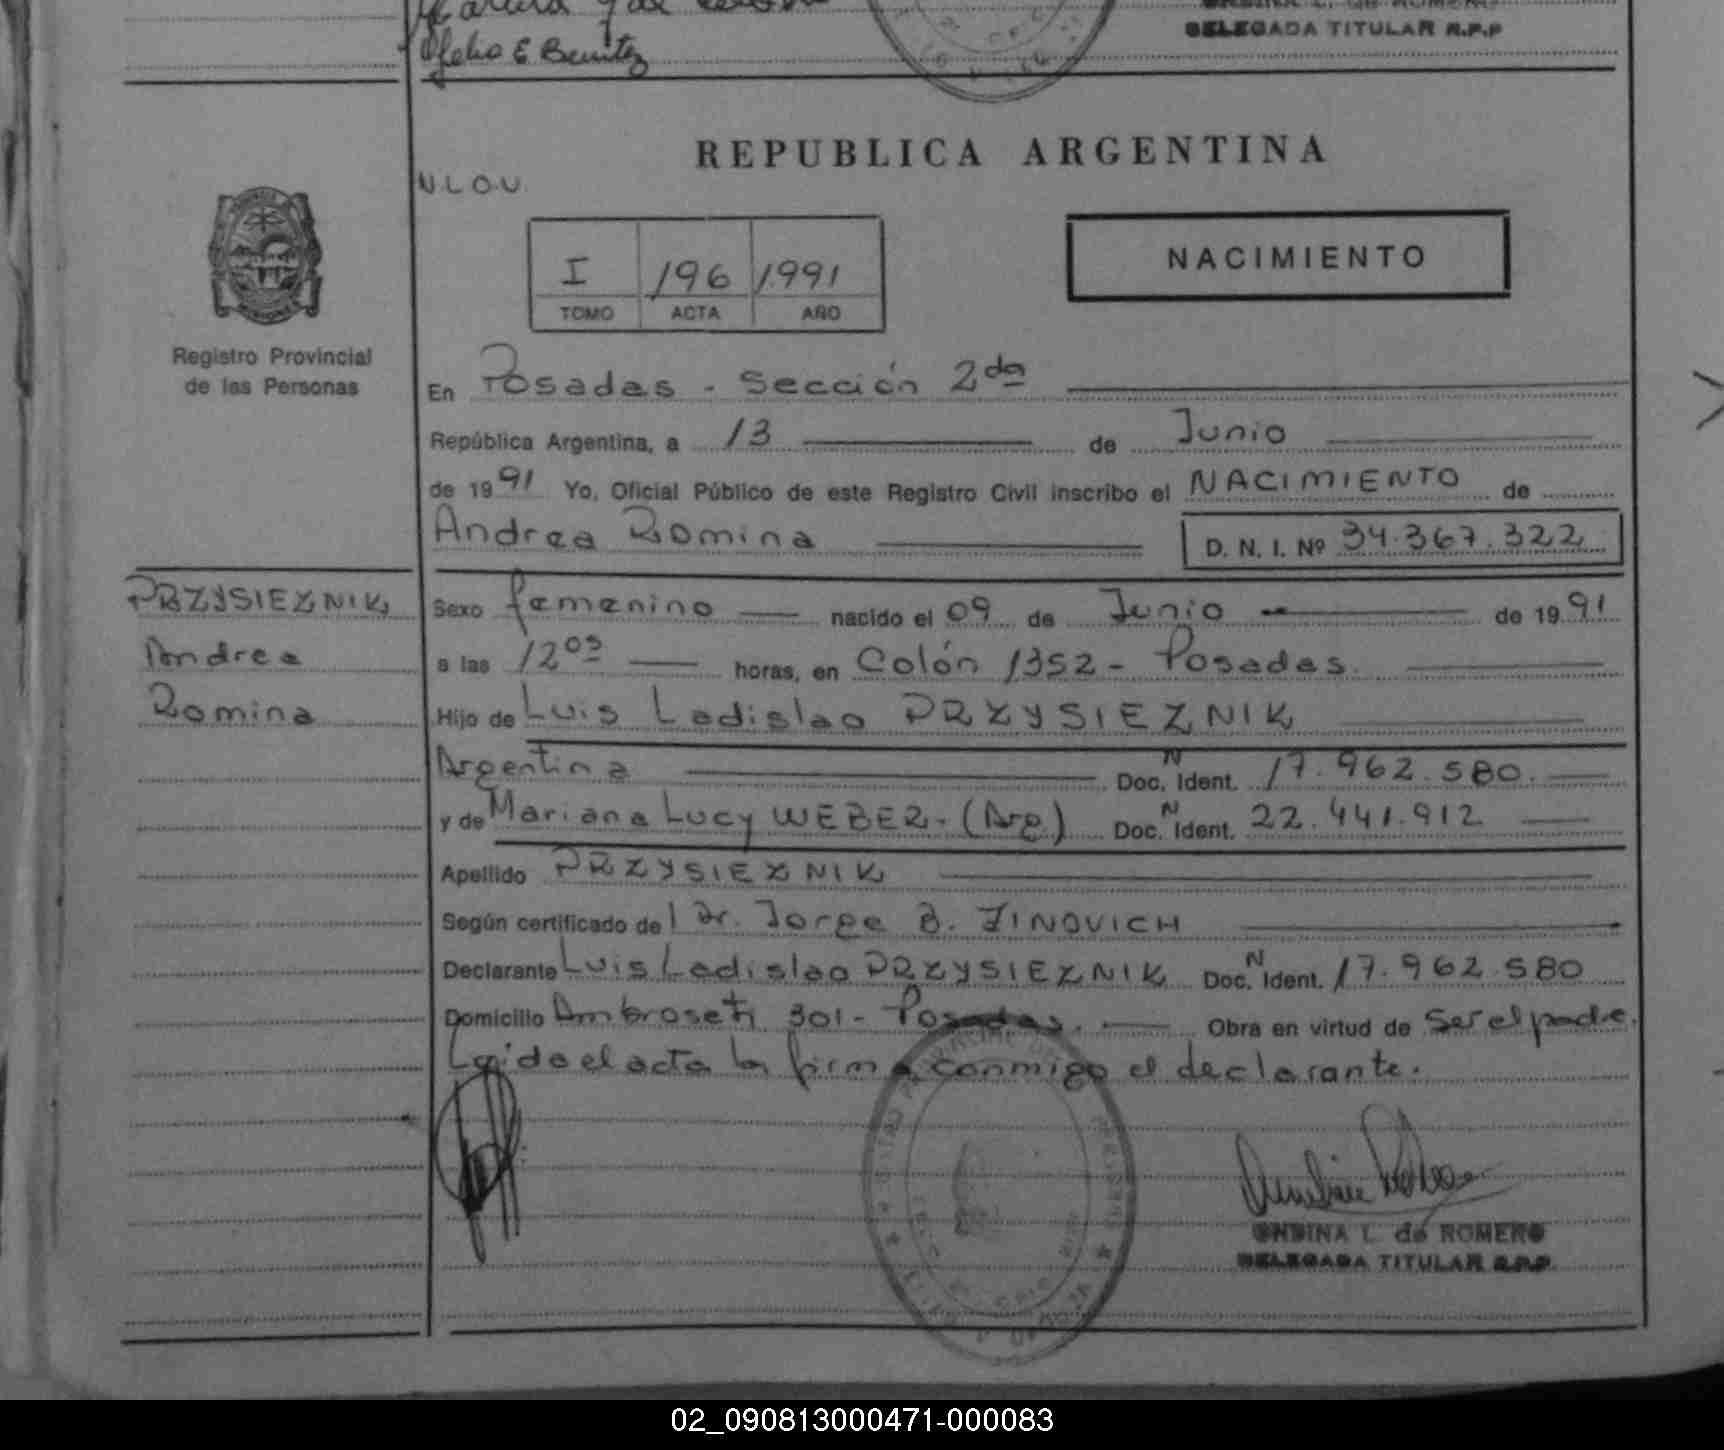 Ofelio E. Benitez
DELEGADA TITULAR R.P.P
REPUBLICA ARGENTINA
N.L.O.U.
I 196 1.991
TOMO ACTA AÑO
NACIMIENTO
Registro Provincial
de las Personas
En Posadas - Sección 2da
República Argentina, a 13 de Junio
de 1991 Yo, Oficial Público de este Registro Civil inscribo el NACIMIENTO de
Andrea Romina D. N. I. Nº 34.367.322
PRZYSIEZNIK
Andrea
Romina
Sexo femenino nacido el 09 de Junio de 1991
a las 12 05 horas, en Colón 1352 - Posadas.
Hijo de Luis Ladislao PRZYSIEZNIK
Argentina Doc. N Ident. 17.962.580.
y de Mariana Lucy WEBER - (Arg) Doc. N Ident. 22.441.912
Apellido PRZYSIEZNIK
Según certificado de Dr. Jorge B. ZINOVICH
Declarante Luis Ladislao PRZYSIEZNIK Doc. N Ident. 17.962.580
Domicilio Ambroseti 301 - Posadas. Obra en virtud de ser el padre.
Leida el acta la firma conmigo el declarante.
ONDINA L. de ROMERO
DELEGADA TITULAR R.P.P
02_090813000471-000083